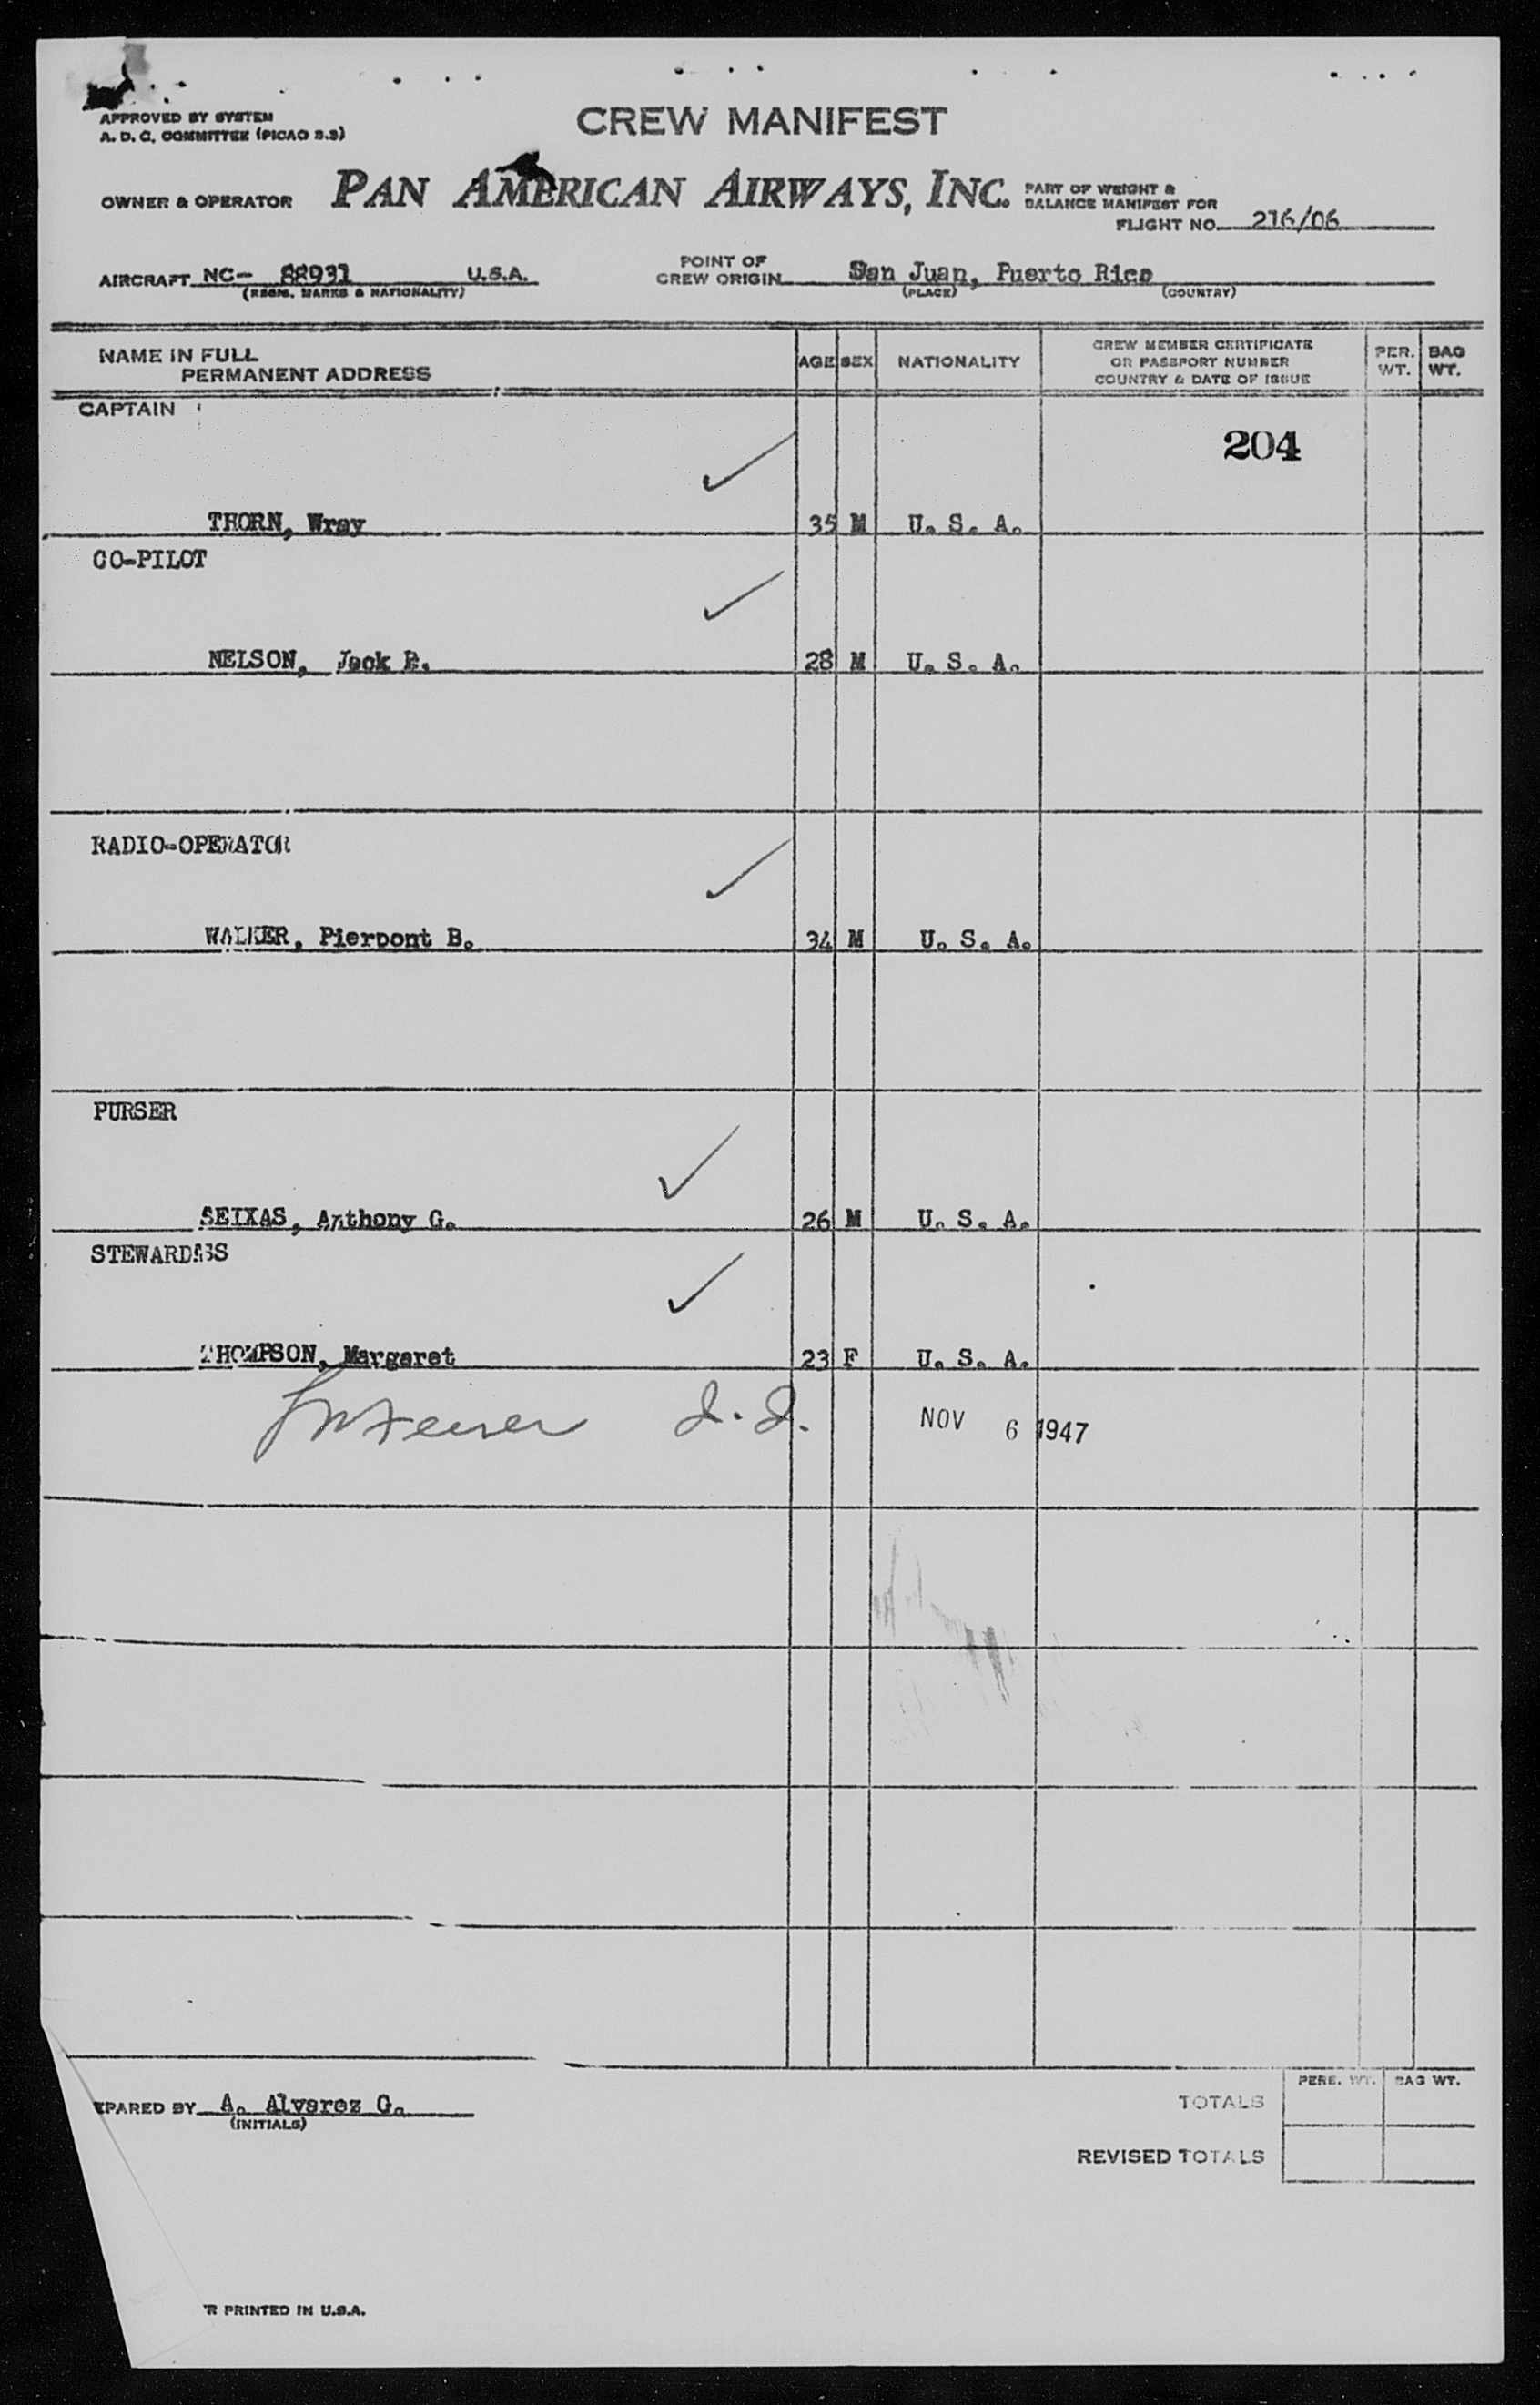 APPROVED BY SYSTEM
A. D. C. COMMITTEE (PICAO 3.3)
CREW MANIFEST
OWNER & OPERATOR PAN AMERICAN AIRWAYS, INC. PART OF WEIGHT &
BALANCE MANIFEST FOR
FLIGHT NO. 216/06
AIRCRAFT NC- 88931 U.S.A.
(REGIS. MARKS & NATIONALITY)
POINT OF
CREW ORIGIN San Juan, Puerto Rico
(PLACE) (COUNTRY)
NAME IN FULL
PERMANENT ADDRESS
AGE SEX NATIONALITY
CREW MEMBER CERTIFICATE
OR PASSPORT NUMBER
COUNTRY & DATE OF ISSUE
PER. WT.
BAG WT.
CAPTAIN
204
THORN, Wray 35 M U. S. A.
CO-PILOT
NELSON, Jack 28 M U. S. A.
RADIO-OPERATOR
WALKER, Pierpont B. 34 M U. S. A.
PURSER
SEIXAS, Anthony G. 26 M U. S. A.
STEWARDESS
THOMPSON, Margaret 23 F U. S. A.
NOV 6 1947
PERS. WT. BAG WT.
EPARED BY A. Alvarez G.
(INITIALS)
TOTALS
REVISED TOTALS
R PRINTED IN U.S.A.